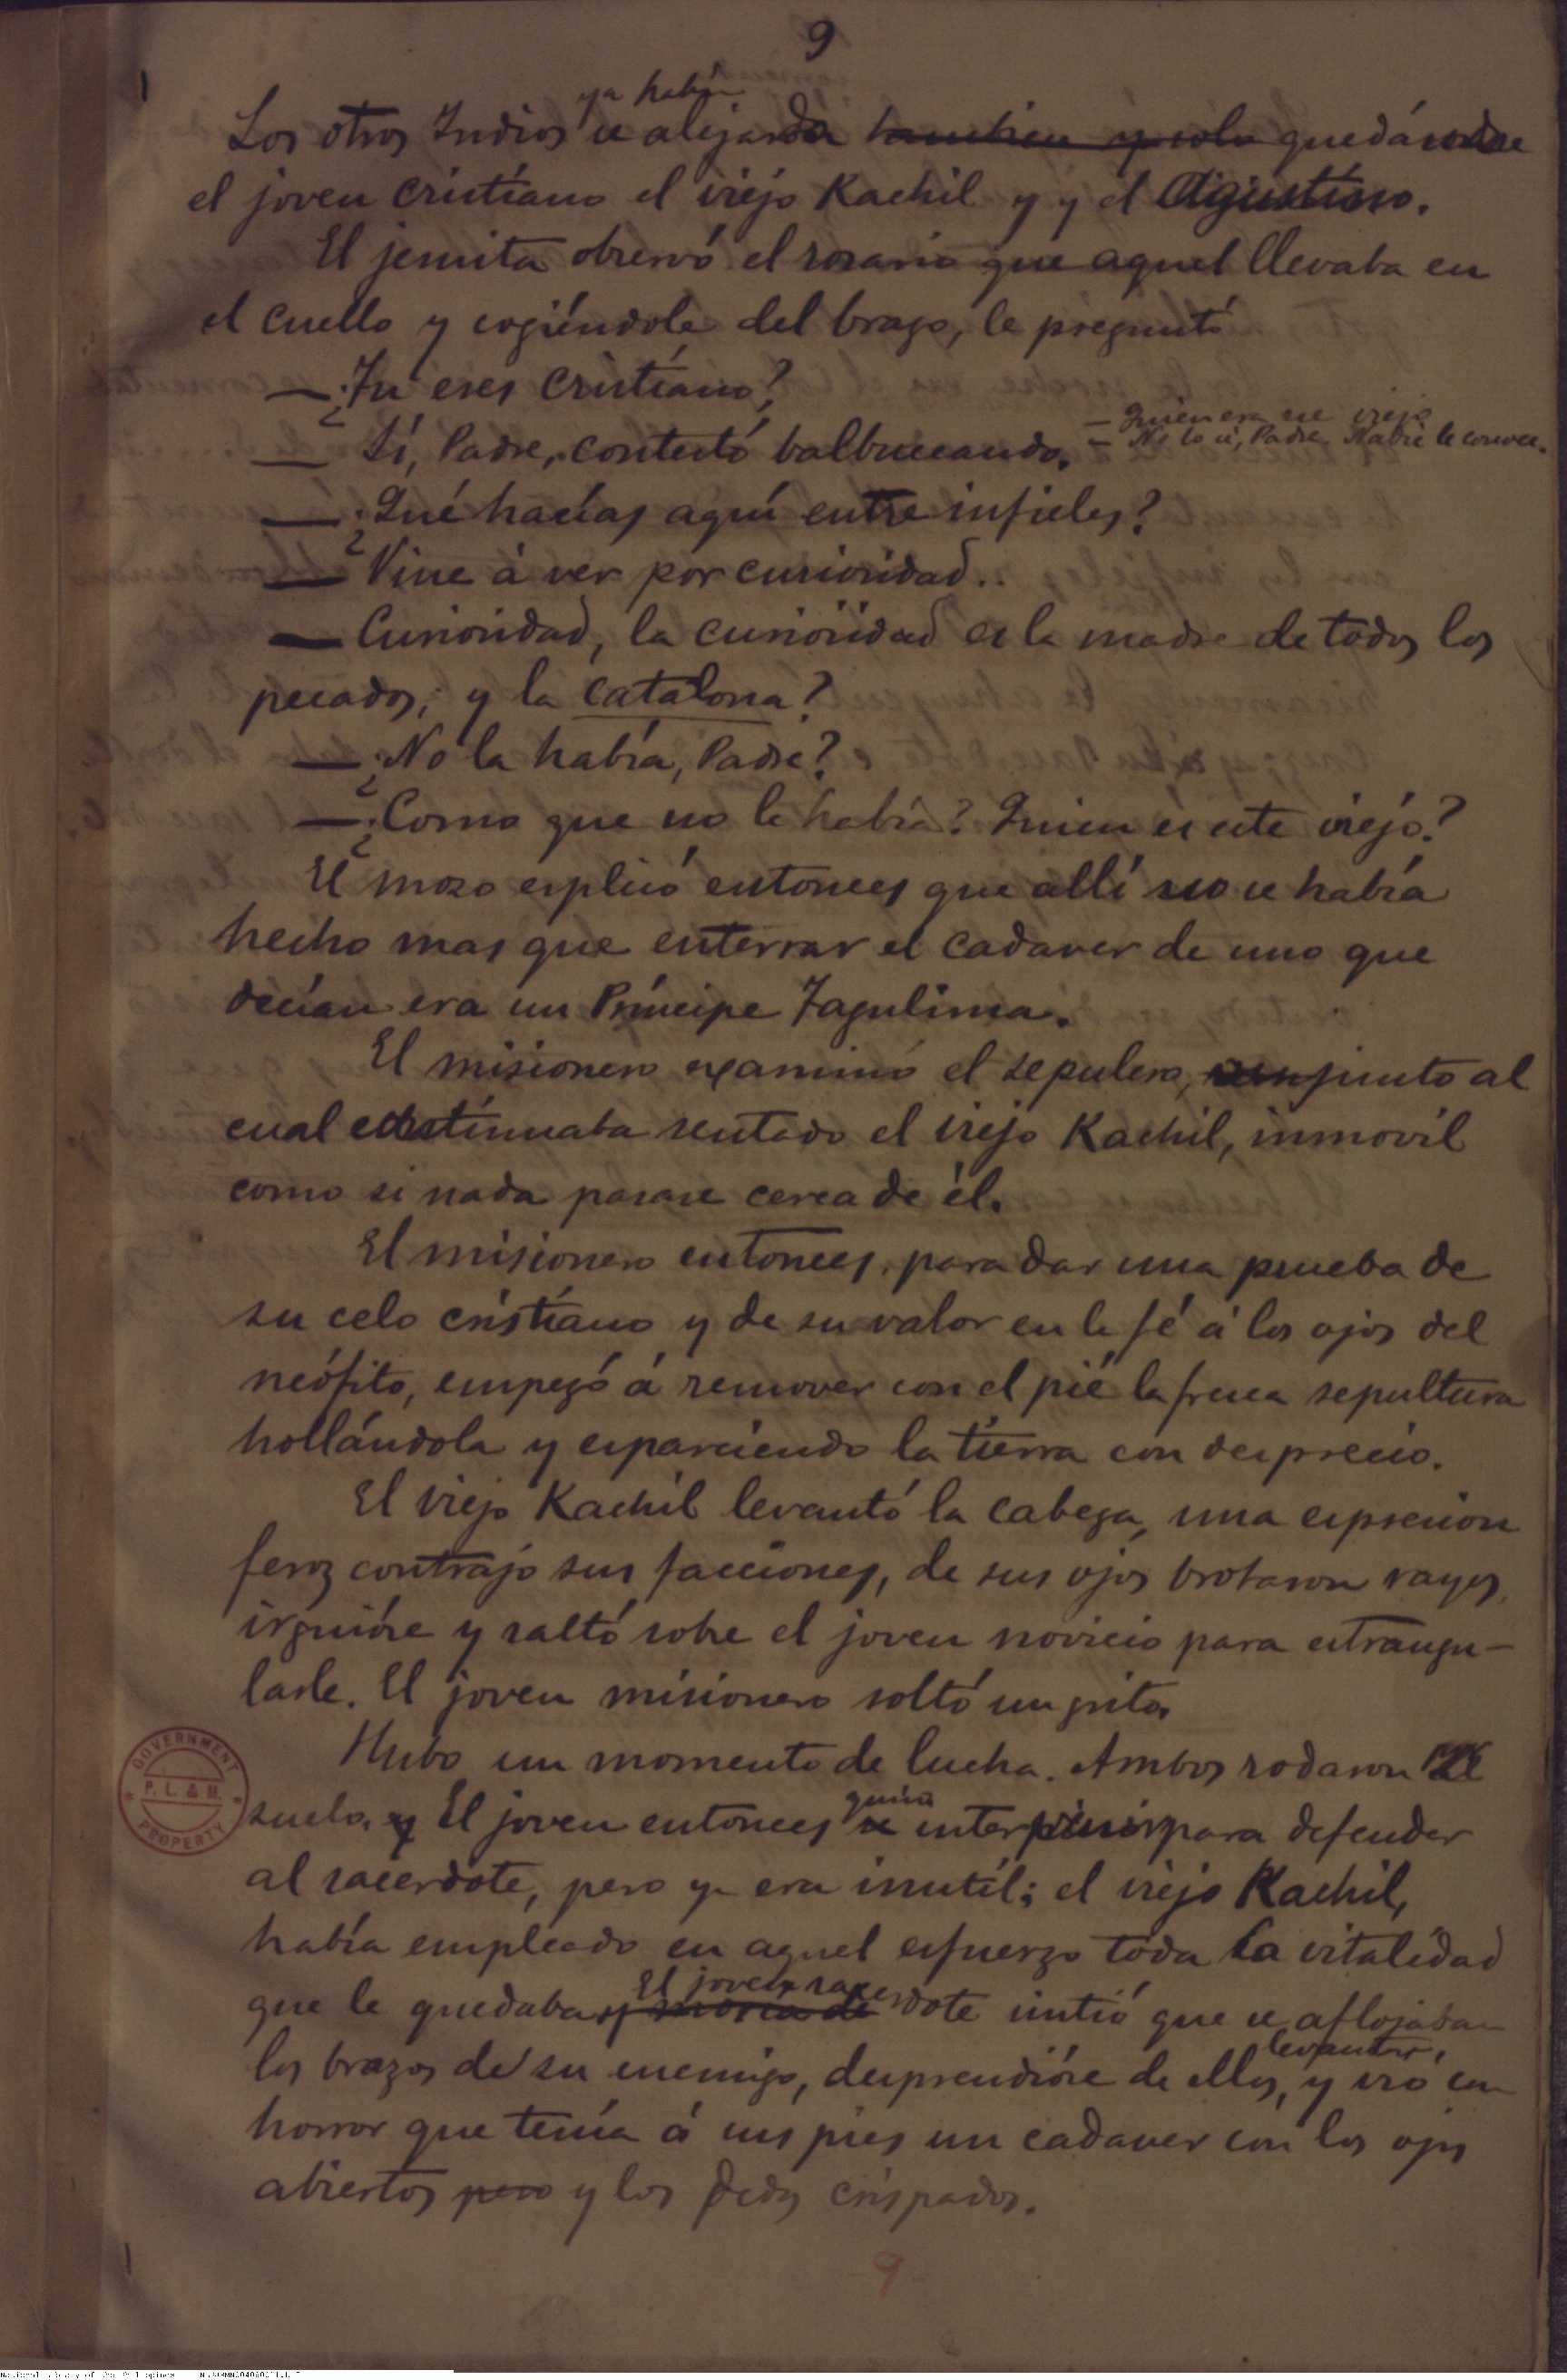 9
ya habían
Los otros Indios se alejaron tambien y solo quedándose
el joven cristiano el viejo Kachil y y el Agustino.
El jesuita observó el rosario que aquel llevaba en
el cuello y cogiéndole del brazo, le preguntó
— ¿Tu eres cristiano?
— Sí, Padre, contestó balbuceando. — Quien era ese viejo
— No lo sé, Padre. Nadie le conoce.
— ¿Qué hacías aquí entre infieles?
— Vine á ver por curiosidad..
— Curiosidad, la curiosidad es la madre de todos los
pecados; y la catalona?
— ¿No la había, Padre?
— ¿Como que no la había? Quien es este viejo?
El mozo esplicó entonces que allí no se había
hecho mas que enterrar el cadaver de uno que
decían era un Príncipe Tagalima.
El misionero examinó el sepulcro, junto al
cual continuaba sentado el viejo Kachil, inmovil
como si nada pasase cerca de él.
El misionero entonces, para dar una prueba de
su celo cristiano y de su valor en la fé á los ojos del
neófito, empezó á remover con el pié la fresca sepultura
hollándola y esparciendo la tierra con desprecio.
El viejo Kachil levantó la cabeza, una espresion
feroz contrajo sus facciones, de sus ojos brotaron rayos,
irguióse y saltó sobre el joven novicio para estrangu-
larle. El joven misionero soltó un grito.
Hubo un momento de lucha. Ambos rodaron
suelo. y El joven entonces se quiso para defender
al sacerdote, pero ya era inutil; el viejo Kachil,
había empleado en aquel esfuerzo toda la vitalidad
que le quedaba y El joven sacerdote sintió que se aflojaban
los brazos de su enemigo, desprendióse de ellos, levantóse, y vió con
horror que tenía á sus pies un cadaver con los ojos
abiertos pero y los dedos crispados.
GOVERNMENT
P. L. & M.
PROPERTY
9